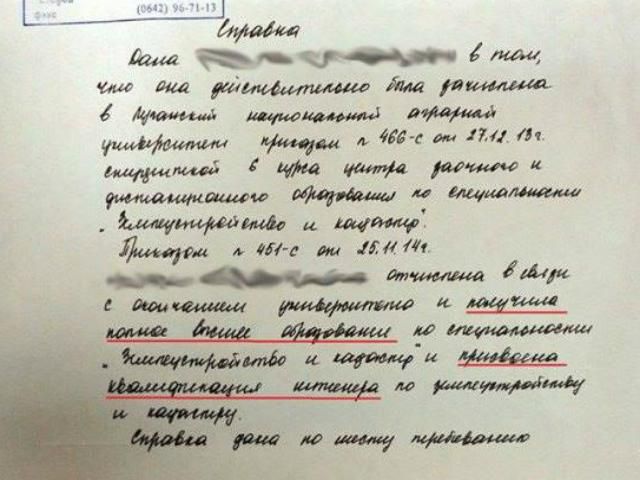 факс (0642) 96-71-13
Справка
Дана в том,
что она действительно была зачислена
в Луганский национальный аграрной
университет приказом № 466-с от 27.12.13г.
студенткой 6 курса центра заочного и
дистанционного образования по специальности
„Землеустройство и кадастр".
Приказом № 451-с от 25.11.14г.
отчислена в связи
с окончанием университета и получила
полное высшее образование по специальности
„Землеустройство и кадастр" и присвоена
квалификация инженера по землеустройству
и кадастру.
Справка дана по месту требованию